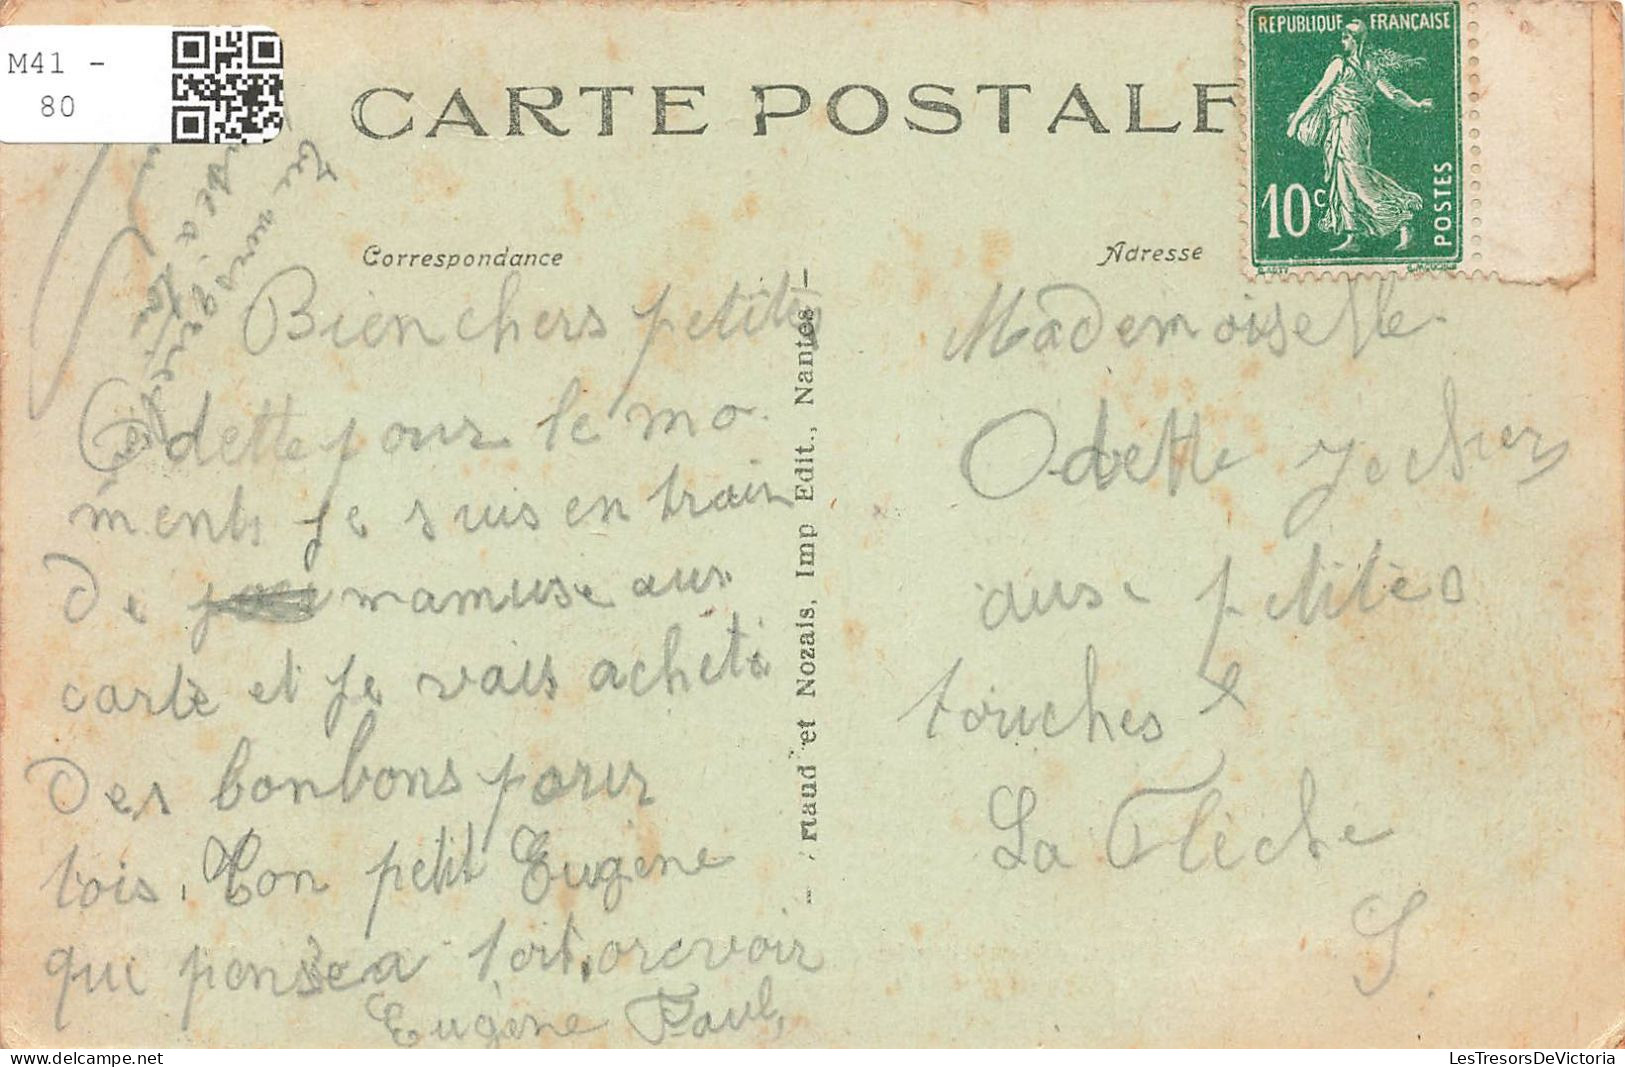 M41 -
80
CARTE POSTALE
REPUBLIQUE FRANÇAISE
10c
POSTES
Correspondance
Adresse
Bien chers petites
Odette pour le mo
ments je suis en train
de mamuse aux
carte et je vais acheté
des bonbons pour
tois, Ton petit Eugène
qui pense a toit, orevoir
Eugène Paul,
Tu
Mademoiselle
Odette
ause petites
touches
La Flèche
S.
rtaud et Nozais, Imp Edit., Nantes -
LesTresorsDeVictoria